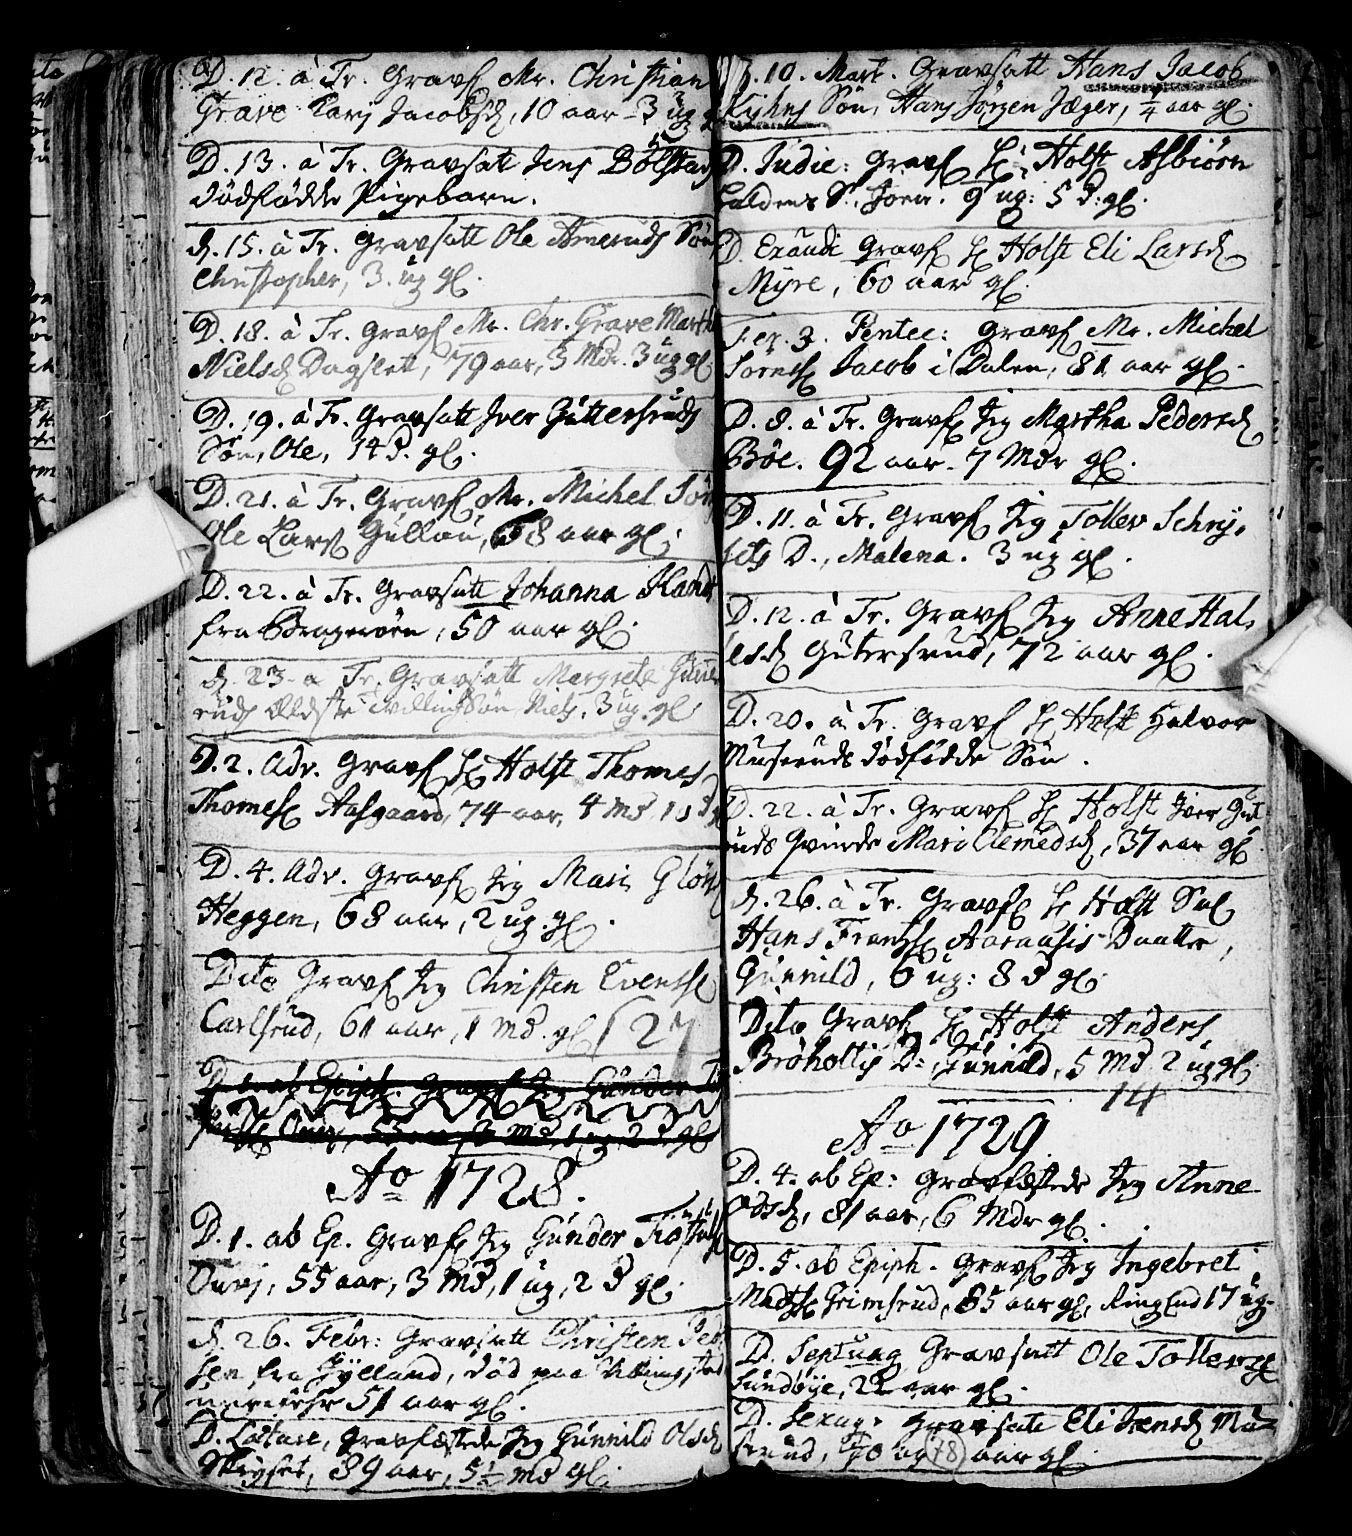 D. 12. à Tr. Gravs. Mr. Christian
Grave Karj Jacobsd, 10 aar 3 ug gl
D. 13. à Tr. Gravsatt Jens Bölstads
dödfödde Pigebarn.
d. 15. à Tr. Gravsatt Ole Ameruds Sön
Christopher, 3. ug gl.
D. 18. à Tr. Gravs. Mr. Chr. Grave Marth
Nielsd Dagslet, 79 aar, 3 Mdr. 3 ug gl
D. 19. à Tr. Gravsatt Iver Guttersruds
Sön, Ole, 14 d. gl.
D. 21. à Tr. Gravs. Mr. Michel Sör
Ole Lars Gullou, 58 aar gl.
D. 22. à Tr. Gravsatt Johanna
fra Bragerøen, 50 aar gl.
d. 23. a Tr. Gravsatt Margrete
ruds ældste Tvillingsön Niels, 3 ug. gl
D. 2. Adv. Gravs. Hr Holst Thomes
Thomess Aasgaard, 74 aar, 4 Md
D. 4. Adv. Gravs. Jeg Mari
Heggen, 68 aar, 2 ug. gl.
Dito Gravs. Jeg Christen Evens
Carlsrud, 61 aar, 1 Md. gl 27
D. 1. ab Epiph. Gravs Jeg Gunder
Ovnj, 55 aar 3 Md, 1 ug, 2 d. gl
Ao 1728.
D. 1. ab Ep. Gravs. Jeg Gunder
Ovnj, 55 aar, 3 Md, 1 ug, 2 d gl.
d. 26. Febr: Gravsatt Christen Ped
sen fra Jylland, död paa
51 aar gl.
D. Lætare, Gravfæstede Jeg Gunnild Olsd
89 aar, 5½ Md gl.
D. 10. Mart. Gravsatt Hans Jacob
Kuhns Sön, Hans Jörgen Jæger, ¼ aar gl.
D. Judic: Gravs. Hr. Holst Asbiörn
S. 9 ug: 5 d: gl.
D. Exaudi Gravs. Hr Holst Eli Larsd
Myre, 60 aar gl.
Fer. 3. Pentec: Gravs. Mr. Michel
Sörens. Jacob i Dalen, 81 aar gl.
D. 8. à Tr. Gravs. Jeg Martha Pedersd
Böe. 92 aar. 7 Mdr gl.
D. 11. à Tr. Gravs. Jeg Tollev
D., Malena. 3 ug gl.
D. 12. à Tr. Gravs Jeg Anne Hal-
Gutersrud, 72 aar gl.
D. 20. à Tr. Gravs Hr Holst Halvor
Museruds dödfödde Sön.
D. 22. à Tr. Gravs Hr Holst Iver Gut
ruds Qvinde Mari Clemedsd, 37 aar gl
d. 26. à Tr. Gravs. Hr Holst Sal
Hans Frantzs. Daatter,
Gunnild, 6 ug: 8 d gl.
Dito Gravs Hr Holst Anders
Bröholtis D: Gunnild, 5 Md 2 ug gl.
14
Ao 1729.
D. 4. ab Ep: Gravfæstede Jeg Anne
Odsd, 81 aar, 6 Mdr gl.
D. 5. ab Epiph. Gravs Jeg Ingebret
Madss. Grimsrud, 85 aar gl, Ringend 17 ug.
D. Septuag Gravsatt Ole Tollevs.
Sundöye, 22 aar gl.
D. Sexag. Gravsatt Eli Jensd Mu-
serud, 78 aar gl